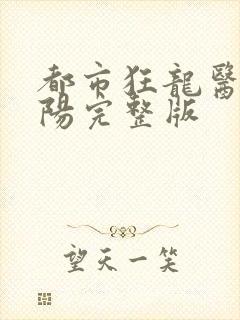 都市狂龍醫
陽完整版
望天一笑